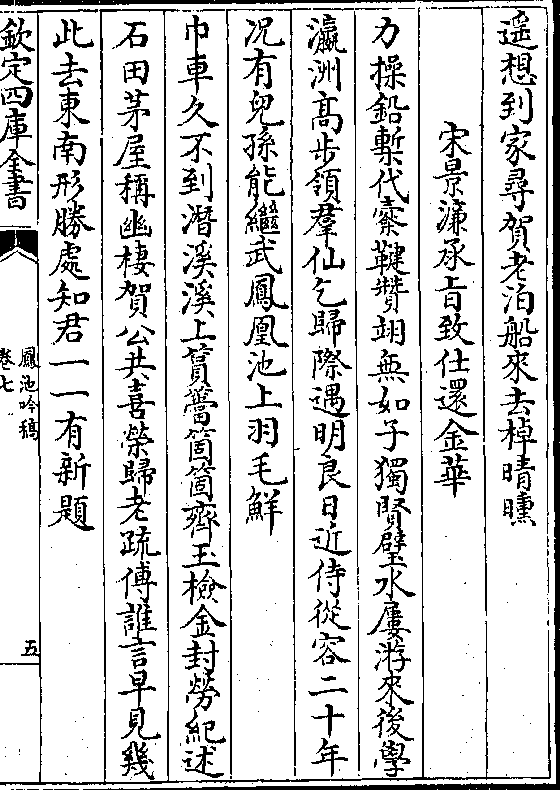 遥想到家尋賀老泊船來去棹晴曛
宋景濂承旨致仕還金華
力操鉛槧代櫜鞬贊翊無如子獨賢璧水屢游來後學
瀛洲高步領羣仙乞歸際遇明良日近侍從容二十年
况有兒孫能繼武鳳凰池上羽毛鮮
巾車久不到潛溪溪上篔簹箇箇齊玉檢金封勞紀述
石田茅屋稱幽棲賀公共喜榮歸老疏傅誰言早見幾
此去東南形勝處知君一一有新題
欽定四庫全書
鳳池吟稿
卷七
五